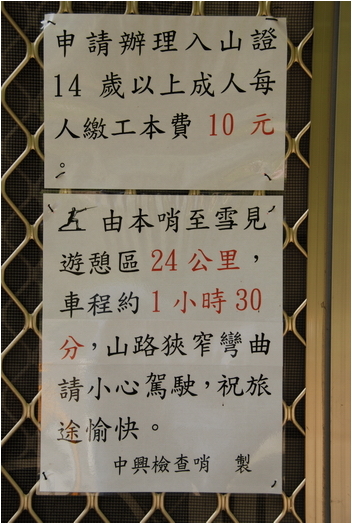 申請辦理入山證
14 歲以上成人每
人繳工本費 10 元
。
由本哨至雪見
遊憩區 24 公里，
車程約 1 小時 30
分，山路狹窄彎曲
請小心駕駛，祝旅
途愉快。
中興檢查哨 製